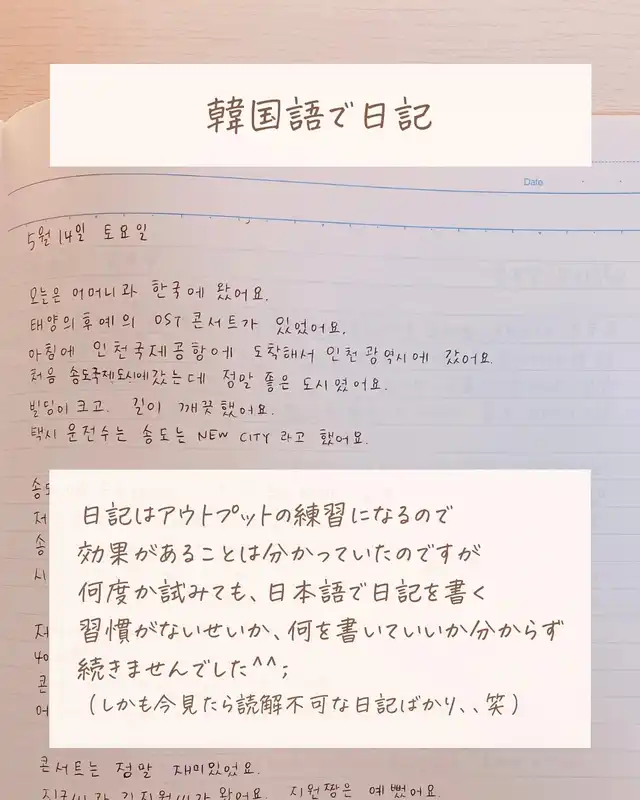 韓国語で日記
Date
5월 14일 토요일
오늘은 어머니과 한국에 왔어요.
태양의후예의 OST 콘서트가 있었어요.
아침에 인천국제공항에 도착해서 인천광역시에 갔어요.
처음 송도국제도시에갔는데 정말 좋은 도시였어요.
빌딩이크고. 길이 깨끗했어요.
택시 운전수는 송도는 NEW CITY 라고 했어요.
日記はアウトプットの練習になるので
効果があることは分かっていたのですが
何度か試みても、日本語で日記を書く
習慣がないせいか、何を書いていいか分からず
続きませんでした^^;
(しかも今見たら読解不可な日記ばかり、、笑)
콘서트는 정말 재미있었요.
지원짱은 예뻤어요.